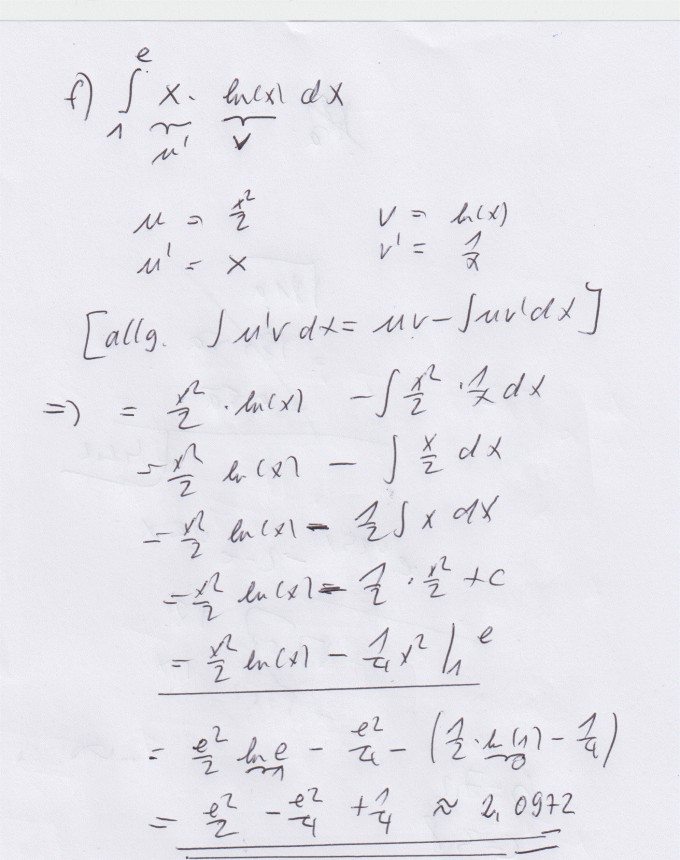 f) ∫₁ᵉ x · ln(x) dx
u' v
u = x²/2 v = ln(x)
u' = x v' = 1/x
[allg. ∫ u'v dx = uv - ∫uv'dx]
=> = x²/2 · ln(x) - ∫ x²/2 · 1/x dx
= x²/2 ln(x) - ∫ x/2 dx
= x²/2 ln(x) - 1/2 ∫ x dx
= x²/2 ln(x) - 1/2 · x²/2 + c
= x²/2 ln(x) - 1/4 x² |₁ᵉ
= e²/2 ln e - e²/4 - (1/2 · ln(1) - 1/4)
1 0
= e²/2 - e²/4 + 1/4 ≈ 2,0972